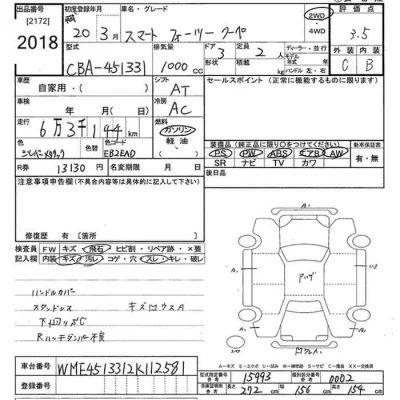 [2172]
2018
初度登録年月
20 3月
車名・グレード
スマート フォーツー クーペ
2WD
・4WD
評価点
3.5
型式
CBA-451331
排気量
1000 CC
ドア
3
定員
2人
ディーラー・並行
ハンドル 左・右
外装
内装
C
B
車歴
自家用・(
シフト
AT
セールスポイント(正常に機能するものに限ります)
車検
年 月
冷房
AC
走行
6万3千194km
燃料
ガソリン
軽油
色
シルバーメタリック
色替
カラーコード
EB2EAD
装備品(純正品に限り○をつけてください)
PS PW ABS エアB AW
SR ナビ TV カワ
新車保証書
有・無
R券
13130円
名変期限
月 日
後日品
注意事項申告欄(不具合含むは具体的に記入して下さい)
修復歴
有り【箇所
検査員記入欄
FW キズ・飛石・ヒビ割・リペア跡・X要
内装 キズ・汚レ・コゲ・穴・スレ・キレ・破レ
ハンドルカバー
キズ凹ウスA
下廻りサビC
Rハッチダンパー不良
A1
スペア
車台番号
WME4513312K112581
登録番号
型式指定番号
15993
類別区分番号
0002
長さ
272cm
幅
156cm
高さ
154cm